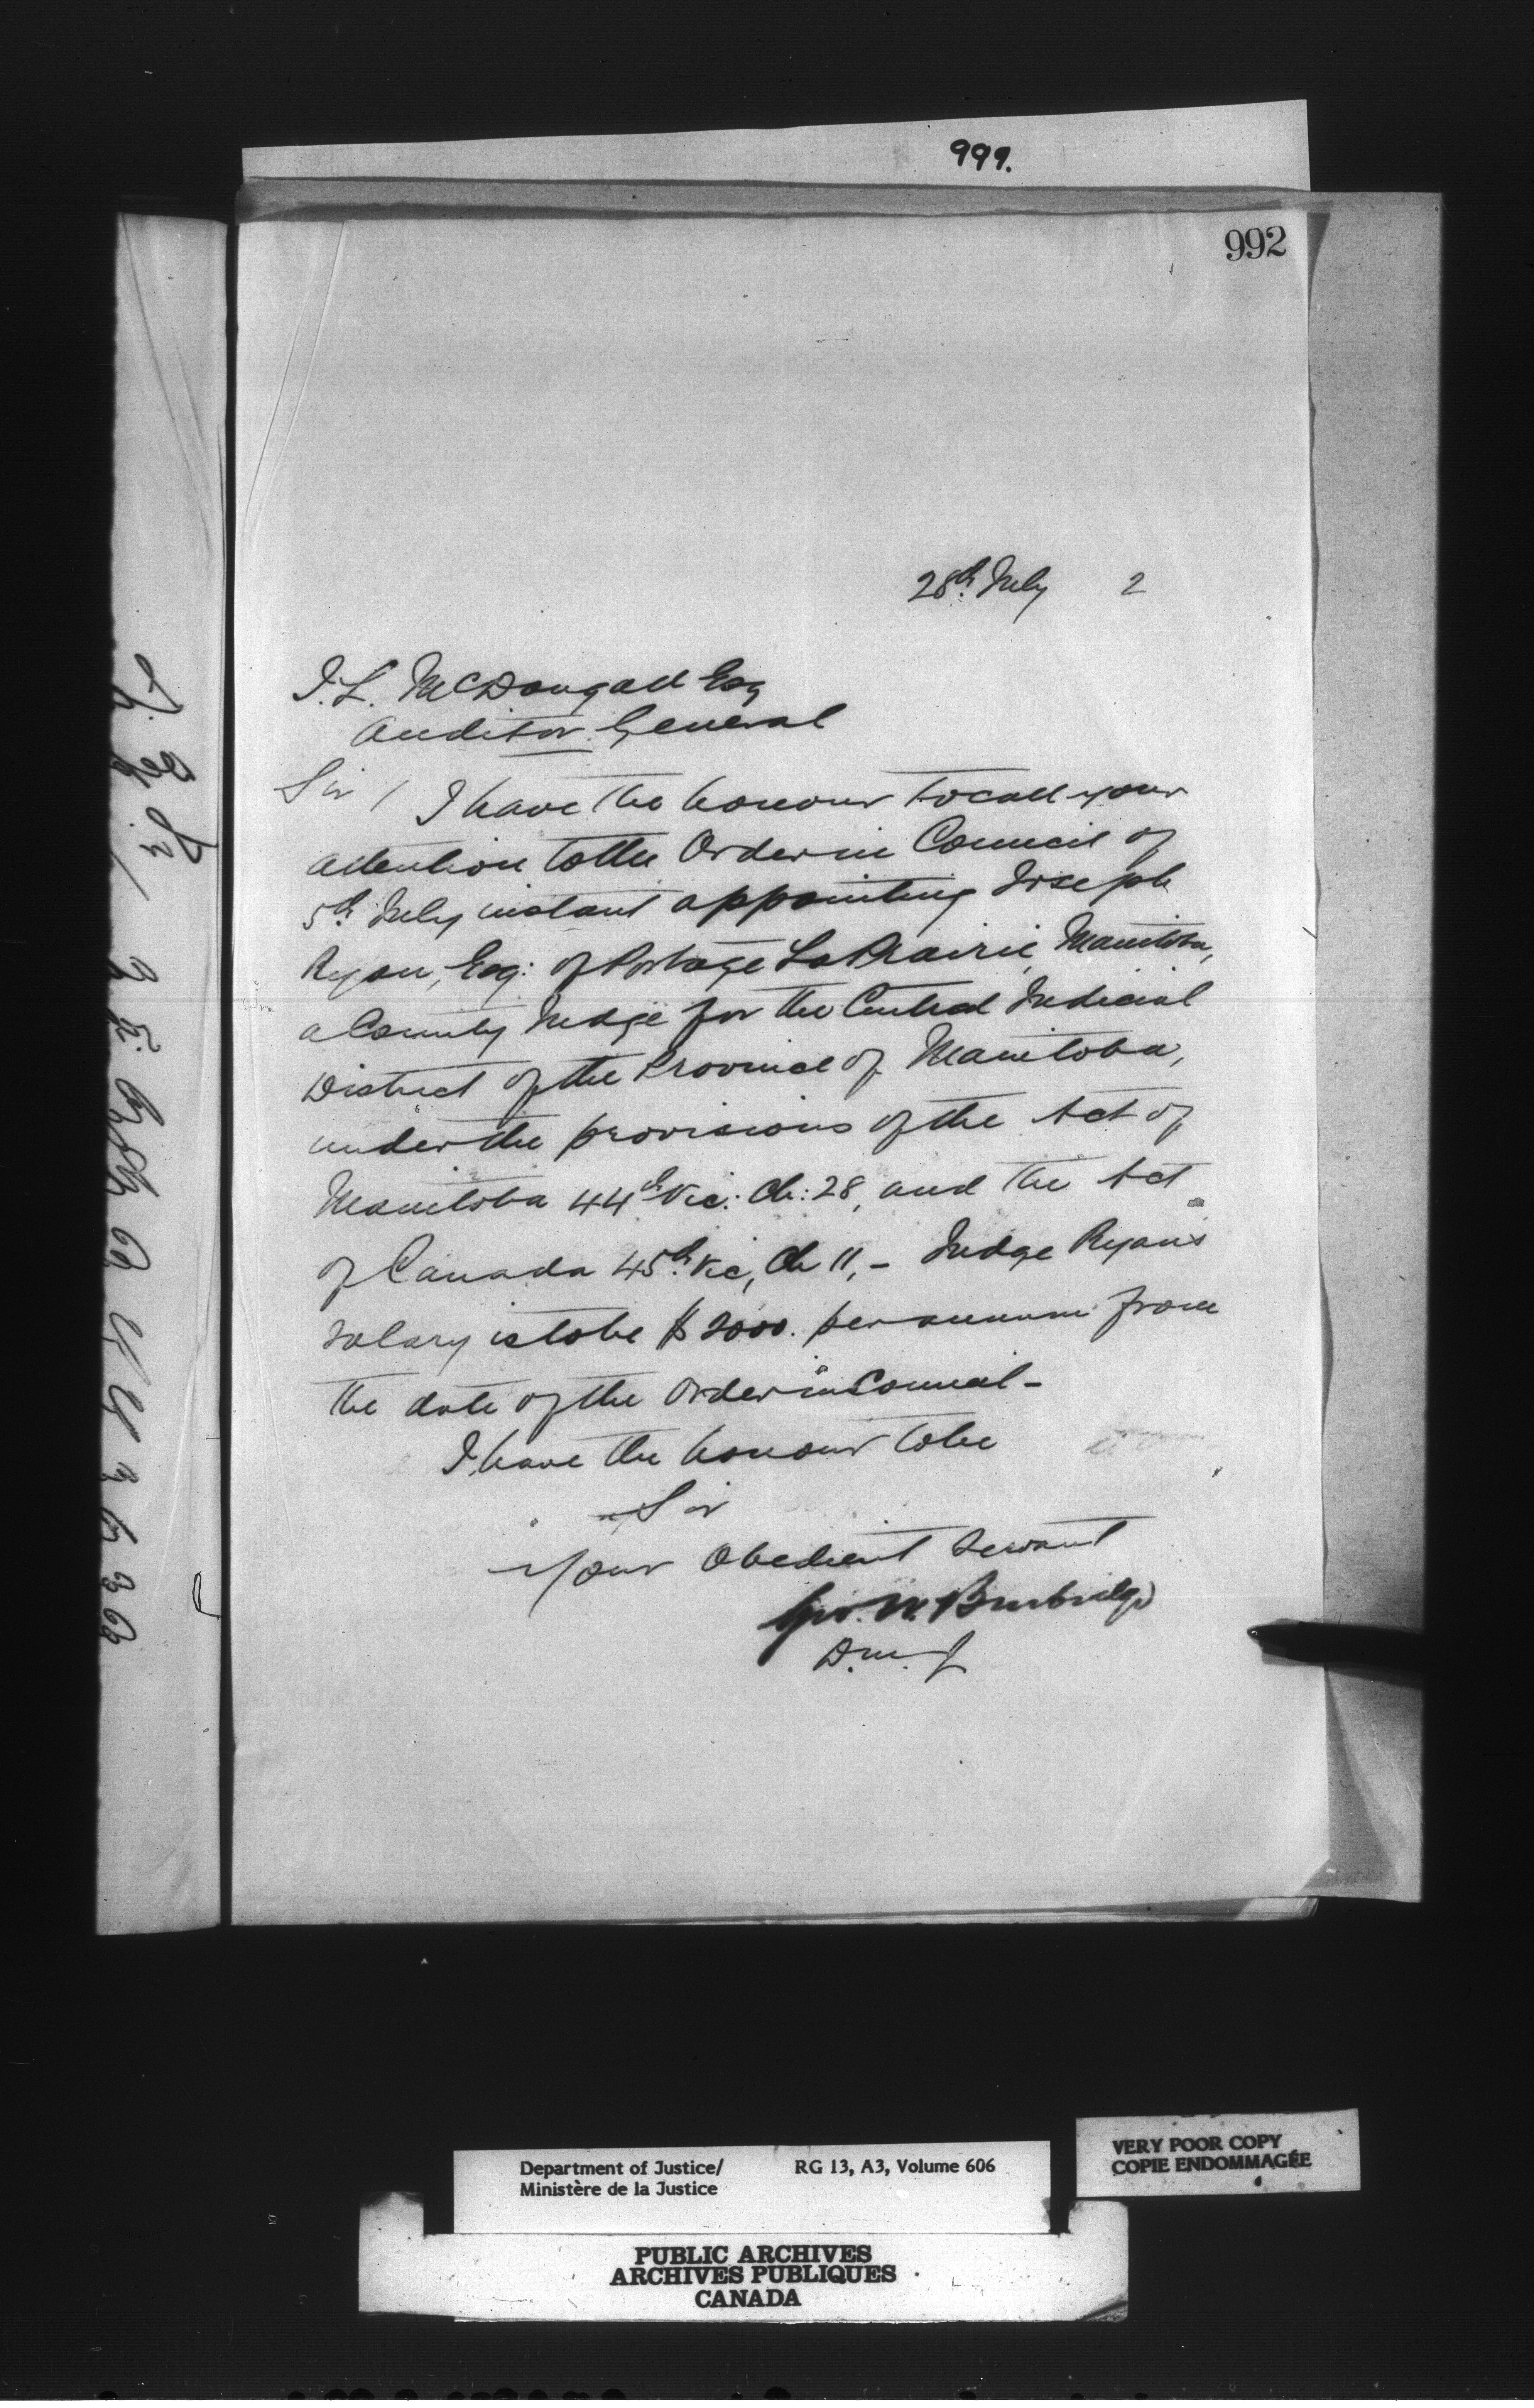 999.
992
28th July 2
J. L. McDougall Esq
Auditor General
Sir / I have the honour to call your
attention to the Order in Council of
5th July instant appointing Joseph
Ryan, Esq: of Portage La Prairie, Manitoba,
a County Judge for the Central Judicial
District of the Province of Manitoba,
under the provisions of the Act of
Manitoba 44th Vic: Ch: 28, and the Act
of Canada 45th Vic, Ch 11, - Judge Ryan's
salary is to be $2000. per annum from
the date of the Order in Council -
I have the honour to be
Sir
Your Obedient Servant
Geo. W. Burbidge
D. M. J
Department of Justice/ RG 13, A3, Volume 606
Ministère de la Justice
VERY POOR COPY
COPIE ENDOMMAGÉE
PUBLIC ARCHIVES
ARCHIVES PUBLIQUES
CANADA